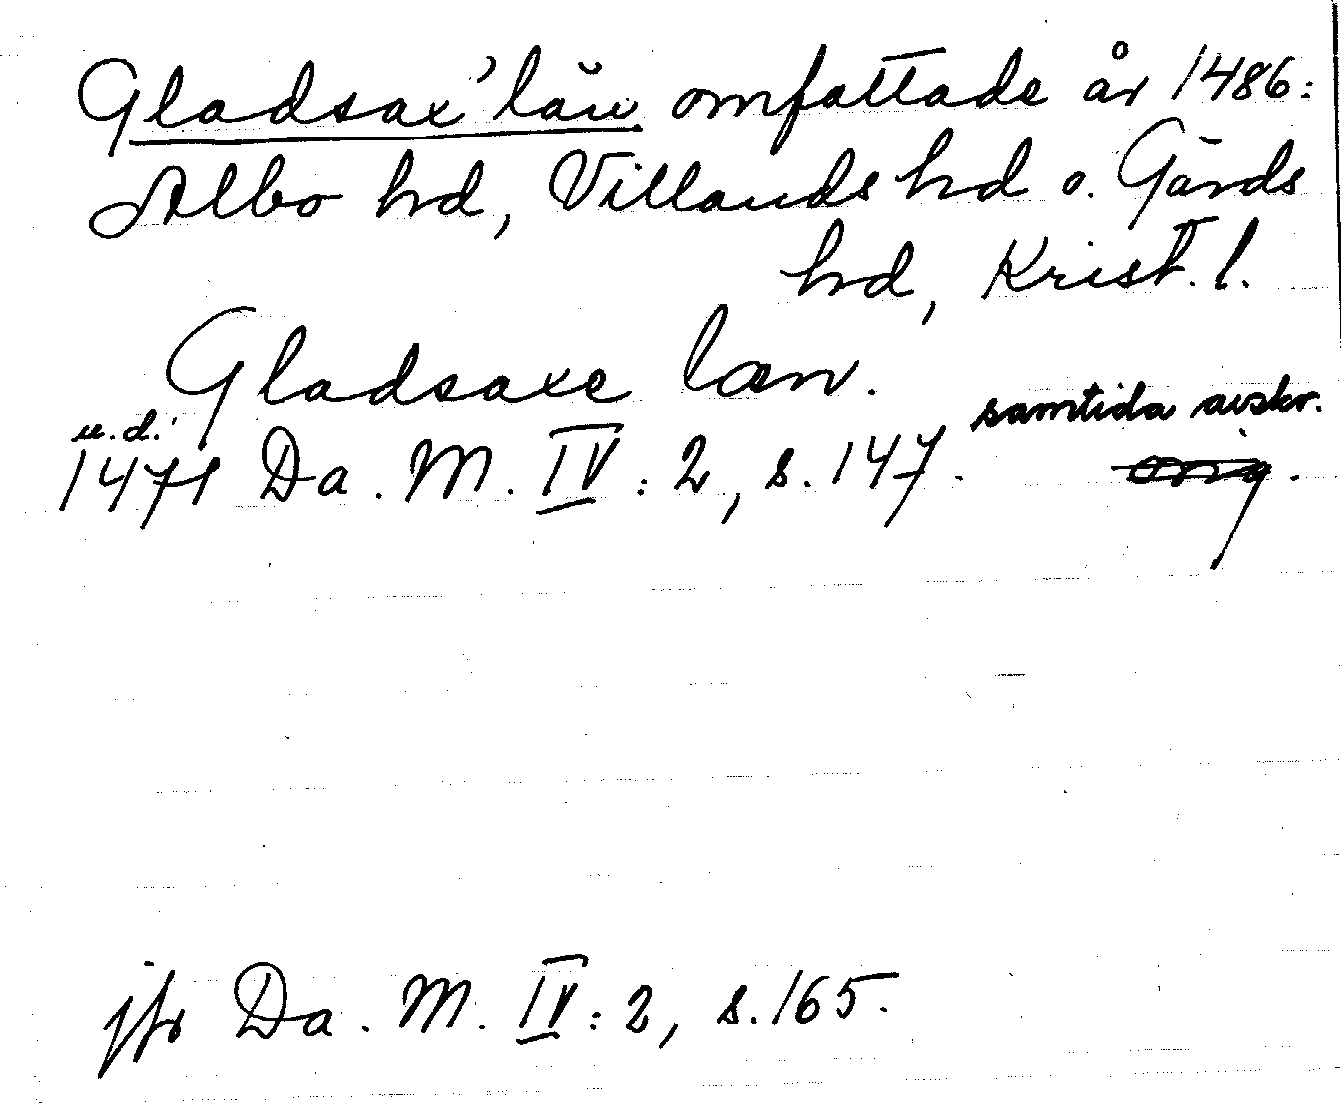 Gladsax' län omfattade år 1486:
Albo hd, Villands hd o. Gärds
hd, Krist. l.
Gladsaxe læn.
u.d.
samtida avskr.
1471 Da. M. IV: 2, s. 147. orig.
jfr Da. M. IV: 2, s. 165.